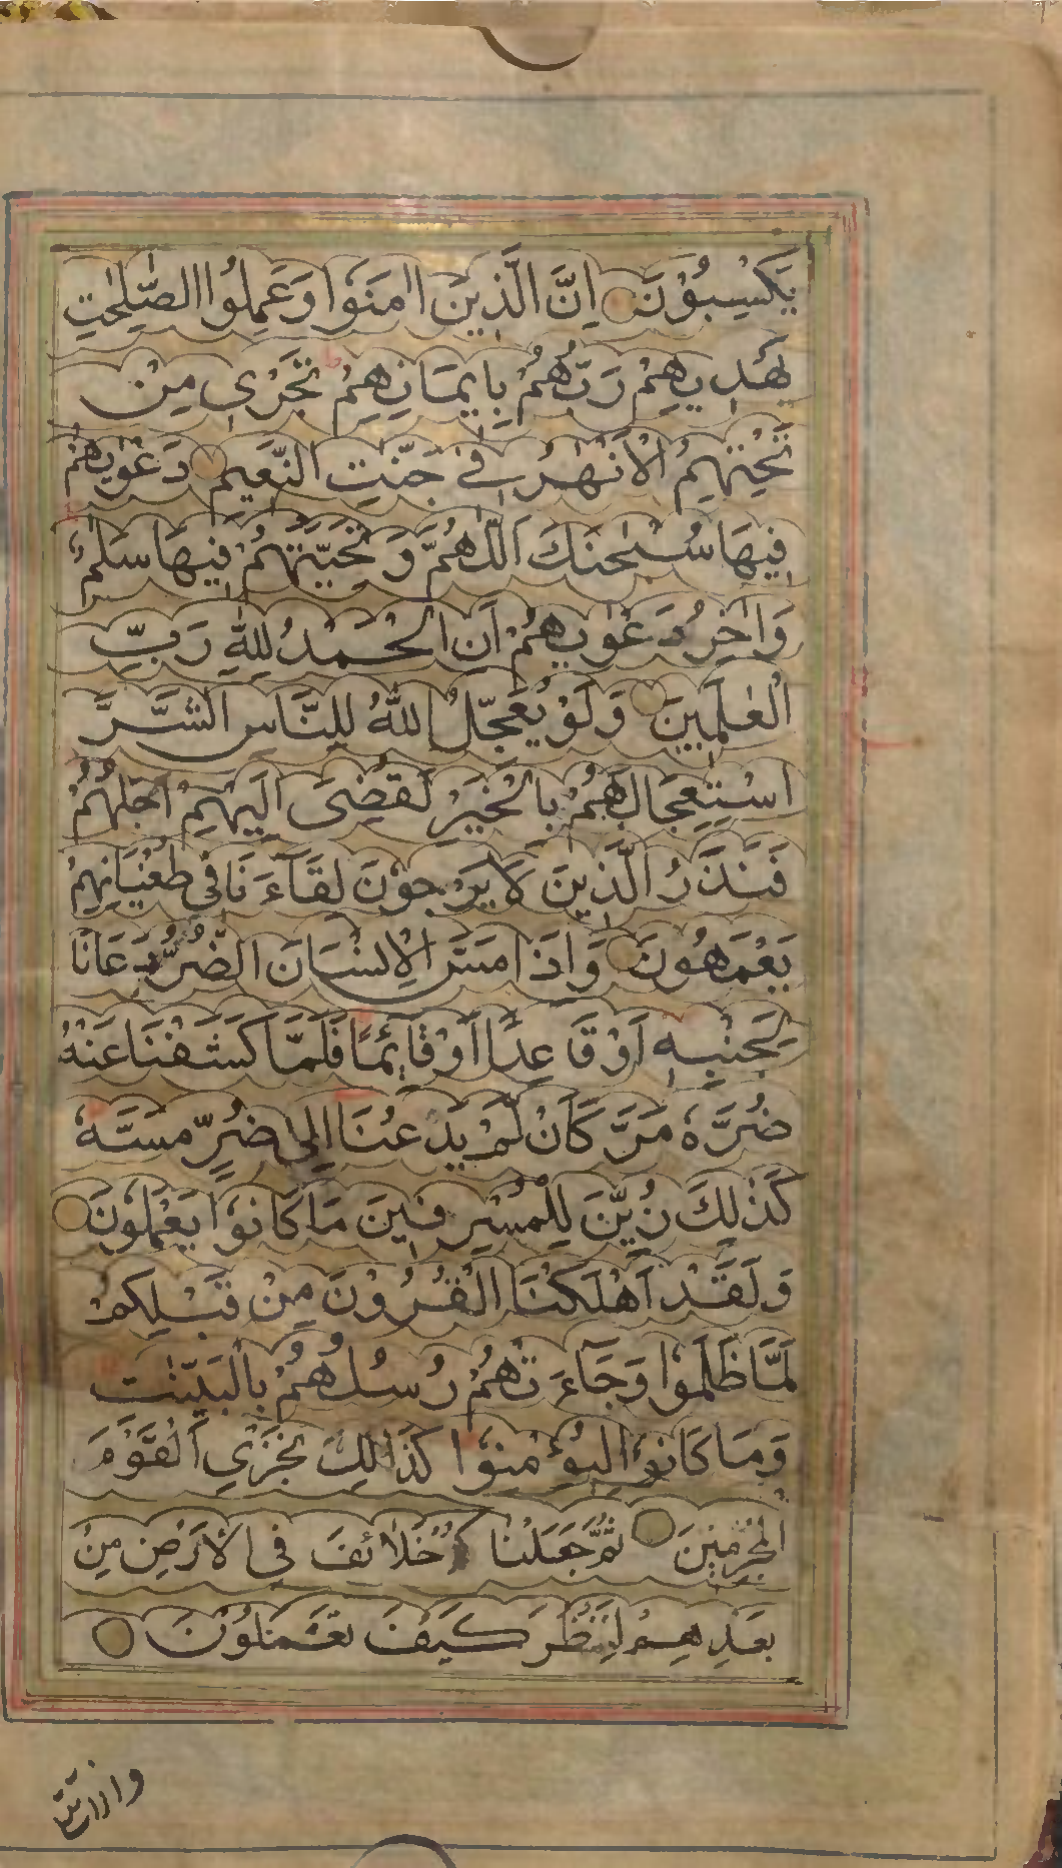 يَكْسِبُوْنَ ۝ اِنَّ الَّذِيْنَ اٰمَنُوْا وَعَمِلُوا الصّٰلِحٰتِ
يَهْدِيْهِمْ رَبُّهُمْ بِاِيْمَانِهِمْ تَجْرِى مِنْ
تَحْتِهِمُ الْاَنْهٰرُ فِى جَنّٰتِ النَّعِيْمِ ۝ دَعْوٰيهُمْ
فِيْهَا سُبْحٰنَكَ اللّٰهُمَّ وَتَحِيَّتُهُمْ فِيْهَا سَلٰمٌ
وَاٰخِرُ دَعْوٰيهُمْ اَنِ الْحَمْدُ لِلّٰهِ رَبِّ
الْعٰلَمِيْنَ ۝ وَلَوْ يُعَجِّلُ اللّٰهُ لِلنَّاسِ الشَّرَّ
اسْتِعْجَالَهُمْ بِالْخَيْرِ لَقُضِىَ اِلَيْهِمْ اَجَلُهُمْ
فَنَذَرُ الَّذِيْنَ لَا يَرْجُوْنَ لِقَآءَنَا فِى طُغْيَانِهِمْ
يَعْمَهُوْنَ ۝ وَاِذَا مَسَّ الْاِنْسَانَ الضُّرُّ دَعَانَا
لِجَنْبِهٖ اَوْ قَاعِدًا اَوْ قَائِمًا فَلَمَّا كَشَفْنَا عَنْهُ
ضُرَّهٗ مَرَّ كَاَنْ لَّمْ يَدْعُنَا اِلٰى ضُرٍّ مَسَّهٗ
كَذٰلِكَ زُيِّنَ لِلْمُسْرِفِيْنَ مَا كَانُوْا يَعْمَلُوْنَ ۝
وَلَقَدْ اَهْلَكْنَا الْقُرُوْنَ مِنْ قَبْلِكُمْ
لَمَّا ظَلَمُوْا وَجَآءَتْهُمْ رُسُلُهُمْ بِالْبَيِّنٰتِ
وَمَا كَانُوْا لِيُؤْمِنُوْا كَذَالِكَ نَجْزِي الْقَوْمَ
الْمُجْرِمِيْنَ ۝ ثُمَّ جَعَلْنَا كُمْ خَلَائِفَ فِى الْاَرْضِ مِنْ
بَعْدِهِمْ لِنَنْظُرَ كَيْفَ تَعْمَلُوْنَ ۝